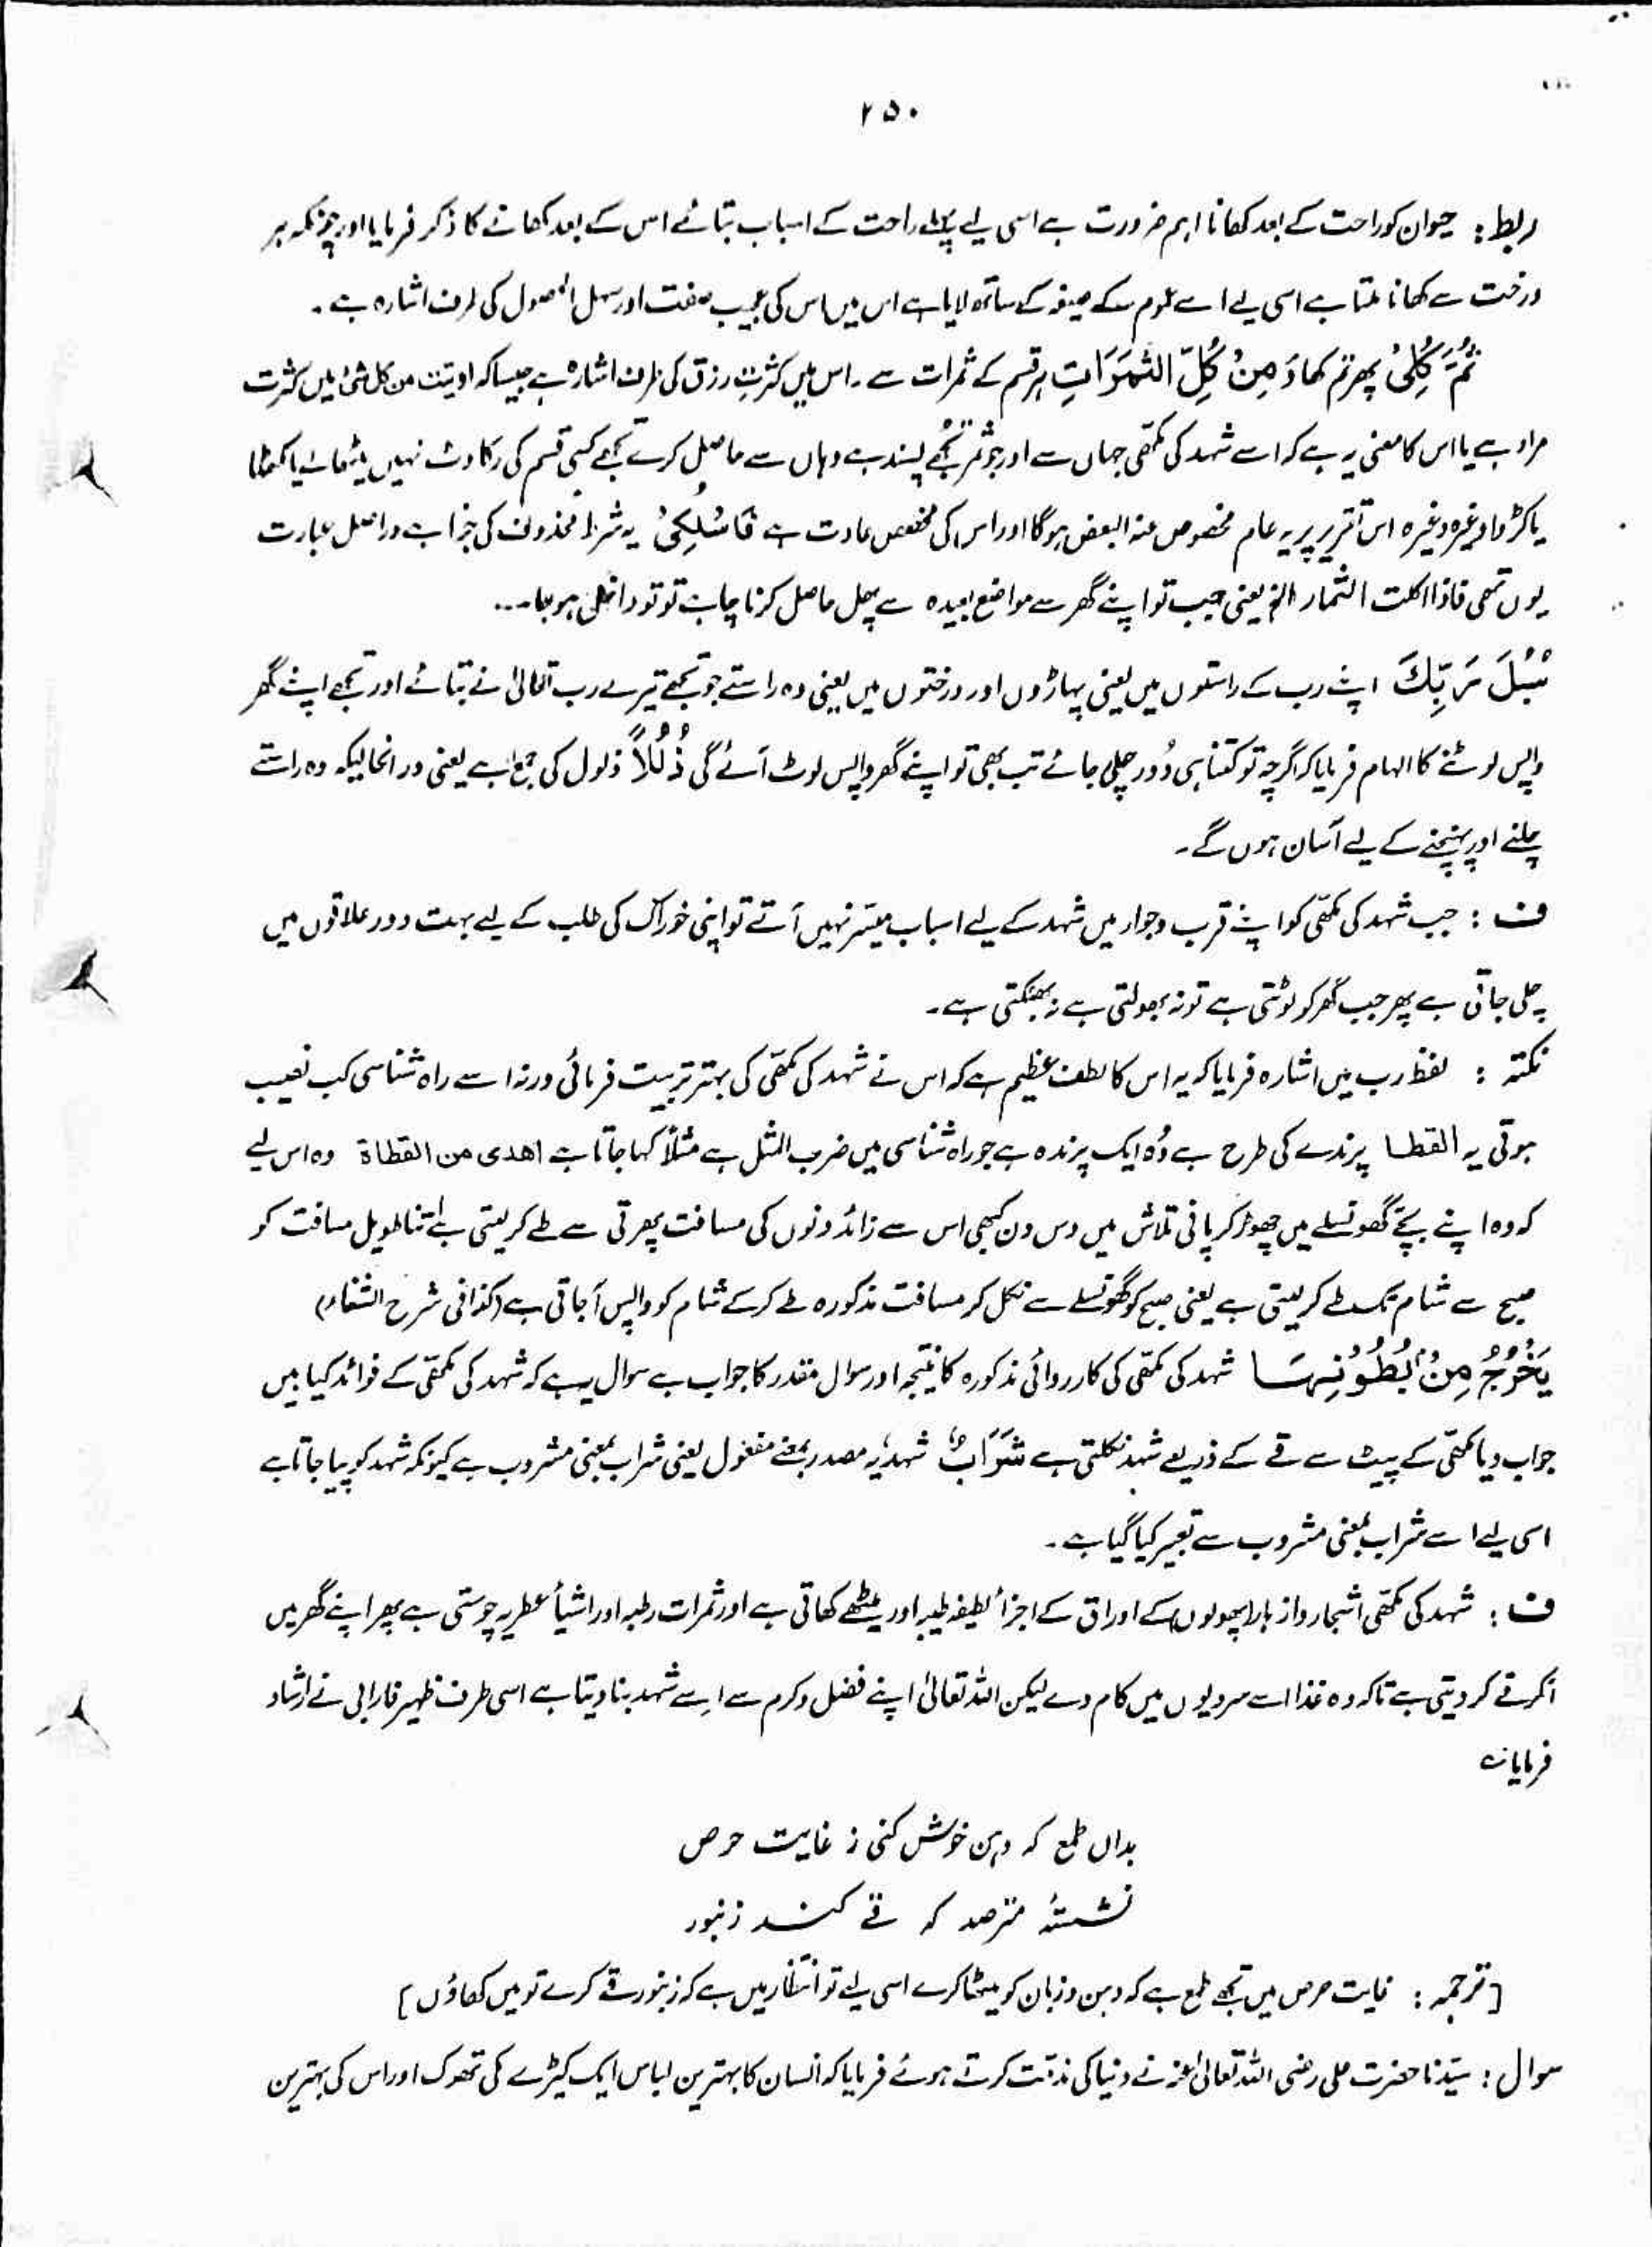 ۲۵۰
ربط : حیوان کو راحت کے بعد کھانا اہم ضرورت ہے اسی لیے پہلے راحت کے اسباب بتائے اس کے بعد کھانے کا ذکر فرمایا اور چونکہ ہر
درخت سے کھانا ملتا ہے اسی لیے اسے عموم کے صیغہ کے ساتھ لایا ہے اس میں اس کی عجیب صفت اور سہل الحصول کی طرف اشارہ ہے ۔
ثُمَّ كُلِىْ پھر تم کھاؤ مِنْ كُلِّ الثَّمَرَاتِ ہر قسم کے ثمرات سے ۔ اس میں کثرتِ رزق کی طرف اشارہ ہے جیسا کہ اوتیت من کل شئ میں کثرت
مراد ہے یا اس کا معنی یہ ہے کہ اے شہد کی مکھّی جہاں سے اور جو ثمر تجھے پسند ہے وہاں سے حاصل کرے تجھے کسی قسم کی رکاوٹ نہیں میٹھا ہے یا کھٹا
یا کڑوا وغیرہ وغیرہ اس تقریر پر یہ عام مخصوص عنہ البعض ہوگا اور اس کی مخصص عادت ہے فَاسْلُكِىْ یہ شرط محذوف کی جزا ہے دراصل عبارت
یوں تھی فاذا اکلت الثمار الخ یعنی جب تو اپنے گھر سے مواضع بعیدہ سے پھل حاصل کرنا چاہے تو تو داخل ہو جا ...
سُبُلَ رَبِّكَ اپنے رب کے راستوں میں یعنی پہاڑوں اور درختوں میں یعنی وہ راستے جو تجھے تیرے رب تعالیٰ نے بتائے اور تجھے اپنے گھر
واپس لوٹنے کا الہام فرمایا کہ اگرچہ تو کتنا ہی دُور چلی جائے تب بھی تو اپنے گھر واپس لوٹ آئے گی ذُلُلًا ذلول کی جمع ہے یعنی درانحالیکہ وہ راستے
چلنے اور پہنچنے کے لیے آسان ہوں گے ۔
ف : جب شہد کی مکھّی کو اپنے قرب وجوار میں شہد کے لیے اسباب میسّر نہیں آتے تو اپنی خوراک کی طلب کے لیے بہت دور علاقوں میں
چلی جاتی ہے پھر جب گھر کو لوٹتی ہے تو نہ بھولتی ہے نہ بھٹکتی ہے ۔
نکتہ : لفظ رب میں اشارہ فرمایا کہ یہ اس کا لطف عظیم ہے کہ اس نے شہد کی مکھّی کی بہتر تربیت فرمائی ورنہ اسے راہ شناسی کب نصیب
ہوتی یہ القطا پرندے کی طرح ہے وُہ ایک پرندہ ہے جو راہ شناسی میں ضرب المثل ہے مثلاً کہا جاتا ہے اھدی من القطاة وہ اس لیے
کہ وہ اپنے بچّے گھونسلے میں چھوڑ کر پانی تلاش میں دس دن کبھی اس سے زائد دنوں کی مسافت پھرتی سے طے کر لیتی ہے اتنا طویل مسافت کو
صبح سے شام تک طے کر لیتی ہے یعنی صبح کو گھونسلے سے نکل کر مسافت مذکورہ طے کرکے شام کو واپس آ جاتی ہے (کذا فی شرح الشفاء)
يَخْرُجُ مِنْ بُطُوْنِهَا شہد کی مکھّی کی کارروائی مذکورہ کا نتیجہ اور سوال مقدر کا جواب ہے سوال یہ ہے کہ شہد کی مکھّی کے فوائد کیا ہیں
جواب دیا مکھّی کے پیٹ سے قے کے ذریعے شہد نکلتی ہے شَرَابٌ شہد، یہ مصدر بمعنے مفعول یعنی شراب بمعنی مشروب ہے کیونکہ شہد کو پیا جاتا ہے
اسی لیے اسے شراب بمعنی مشروب سے تعبیر کیا گیا ہے ۔
ف : شہد کی مکھّی اشجار و ازہار (پھولوں) کے اوراق کے اجزأ لطیفہ طیبہ اور میٹھے کھاتی ہے اور ثمرات رطبہ اور اشیأ عطریہ چوستی ہے پھر اپنے گھر میں
آکر قے کر دیتی ہے تاکہ وہ غذا اسے سردیوں میں کام دے لیکن اللہ تعالیٰ اپنے فضل و کرم سے اسے شہد بنا دیتا ہے اسی طرف ظہیر فارابی نے ارشاد
فرمایا ؎
بداں طمع کہ دہن خوش کنی ز غایت حرص
نشستۂ مترصد کہ قے کند زنبور
[ترجمہ : غایت حرص میں تجھے طمع ہے کہ دہن و زبان کو میٹھا کرے اسی لیے تو انتظار میں ہے کہ زنبور قے کرے تو میں کھاؤں]
سوال : سیّدنا حضرت علی رضی اللہ تعالیٰ عنہ نے دنیا کی مذمّت کرتے ہوئے فرمایا کہ انسان کا بہترین لباس ایک کیڑے کی تھوک اور اس کی بہترین